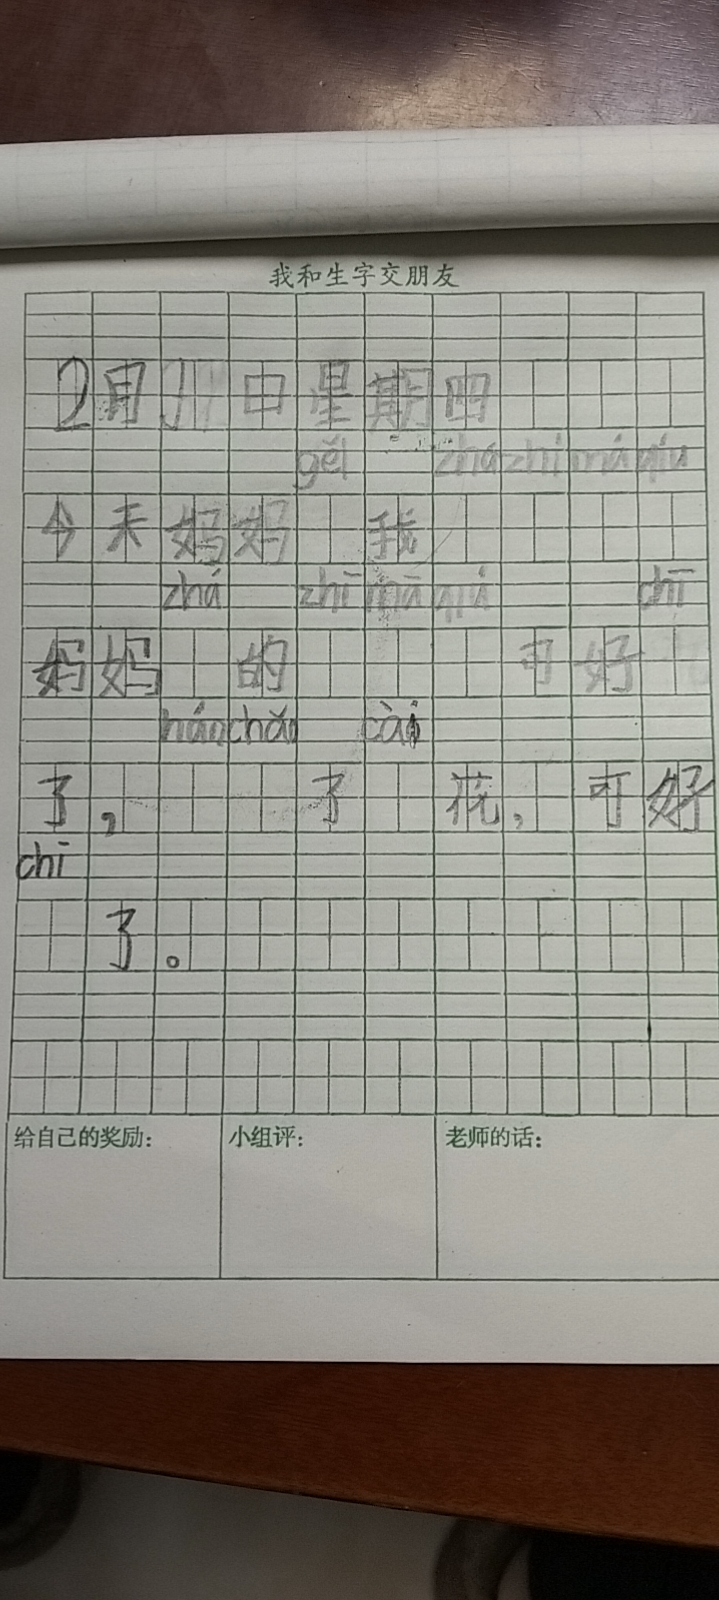 我和生字交朋友
2月 日星期四
gěi zhá zhī má qiú
今天妈妈 我
zhá zhī mā qiú chī
妈妈 的 可好
hái chǎo cài
了， 了 花，可好
chī
了。
给自己的奖励： 小组评： 老师的话：